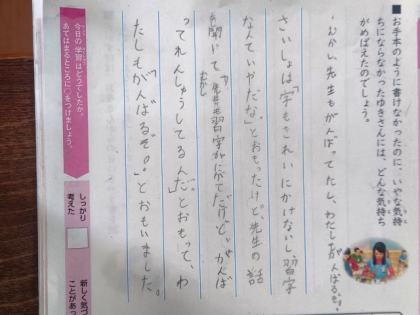 ■お手本のように書けなかったのに、いやな気持
ちにならなかったゆきさんには、どんな気持ち
がめばえたのでしょう。
むかし先生もがんばってたし、わたしもがんばるぞ。
さいしょは「字もきれいにかけないし習字
なんていやだな」とおもったけど先生の話
を聞いて「むかし先生も習字がにがてだけど、がんば
ってれんしゅうしてるんだ」とおもって、わ
たしもがんばるぞ。」とおもいました。
今日の学習はどうでしたか。
あてはまるところに○をつけましょう。
しっかり
考えた
新しく気づ
ことがあっ